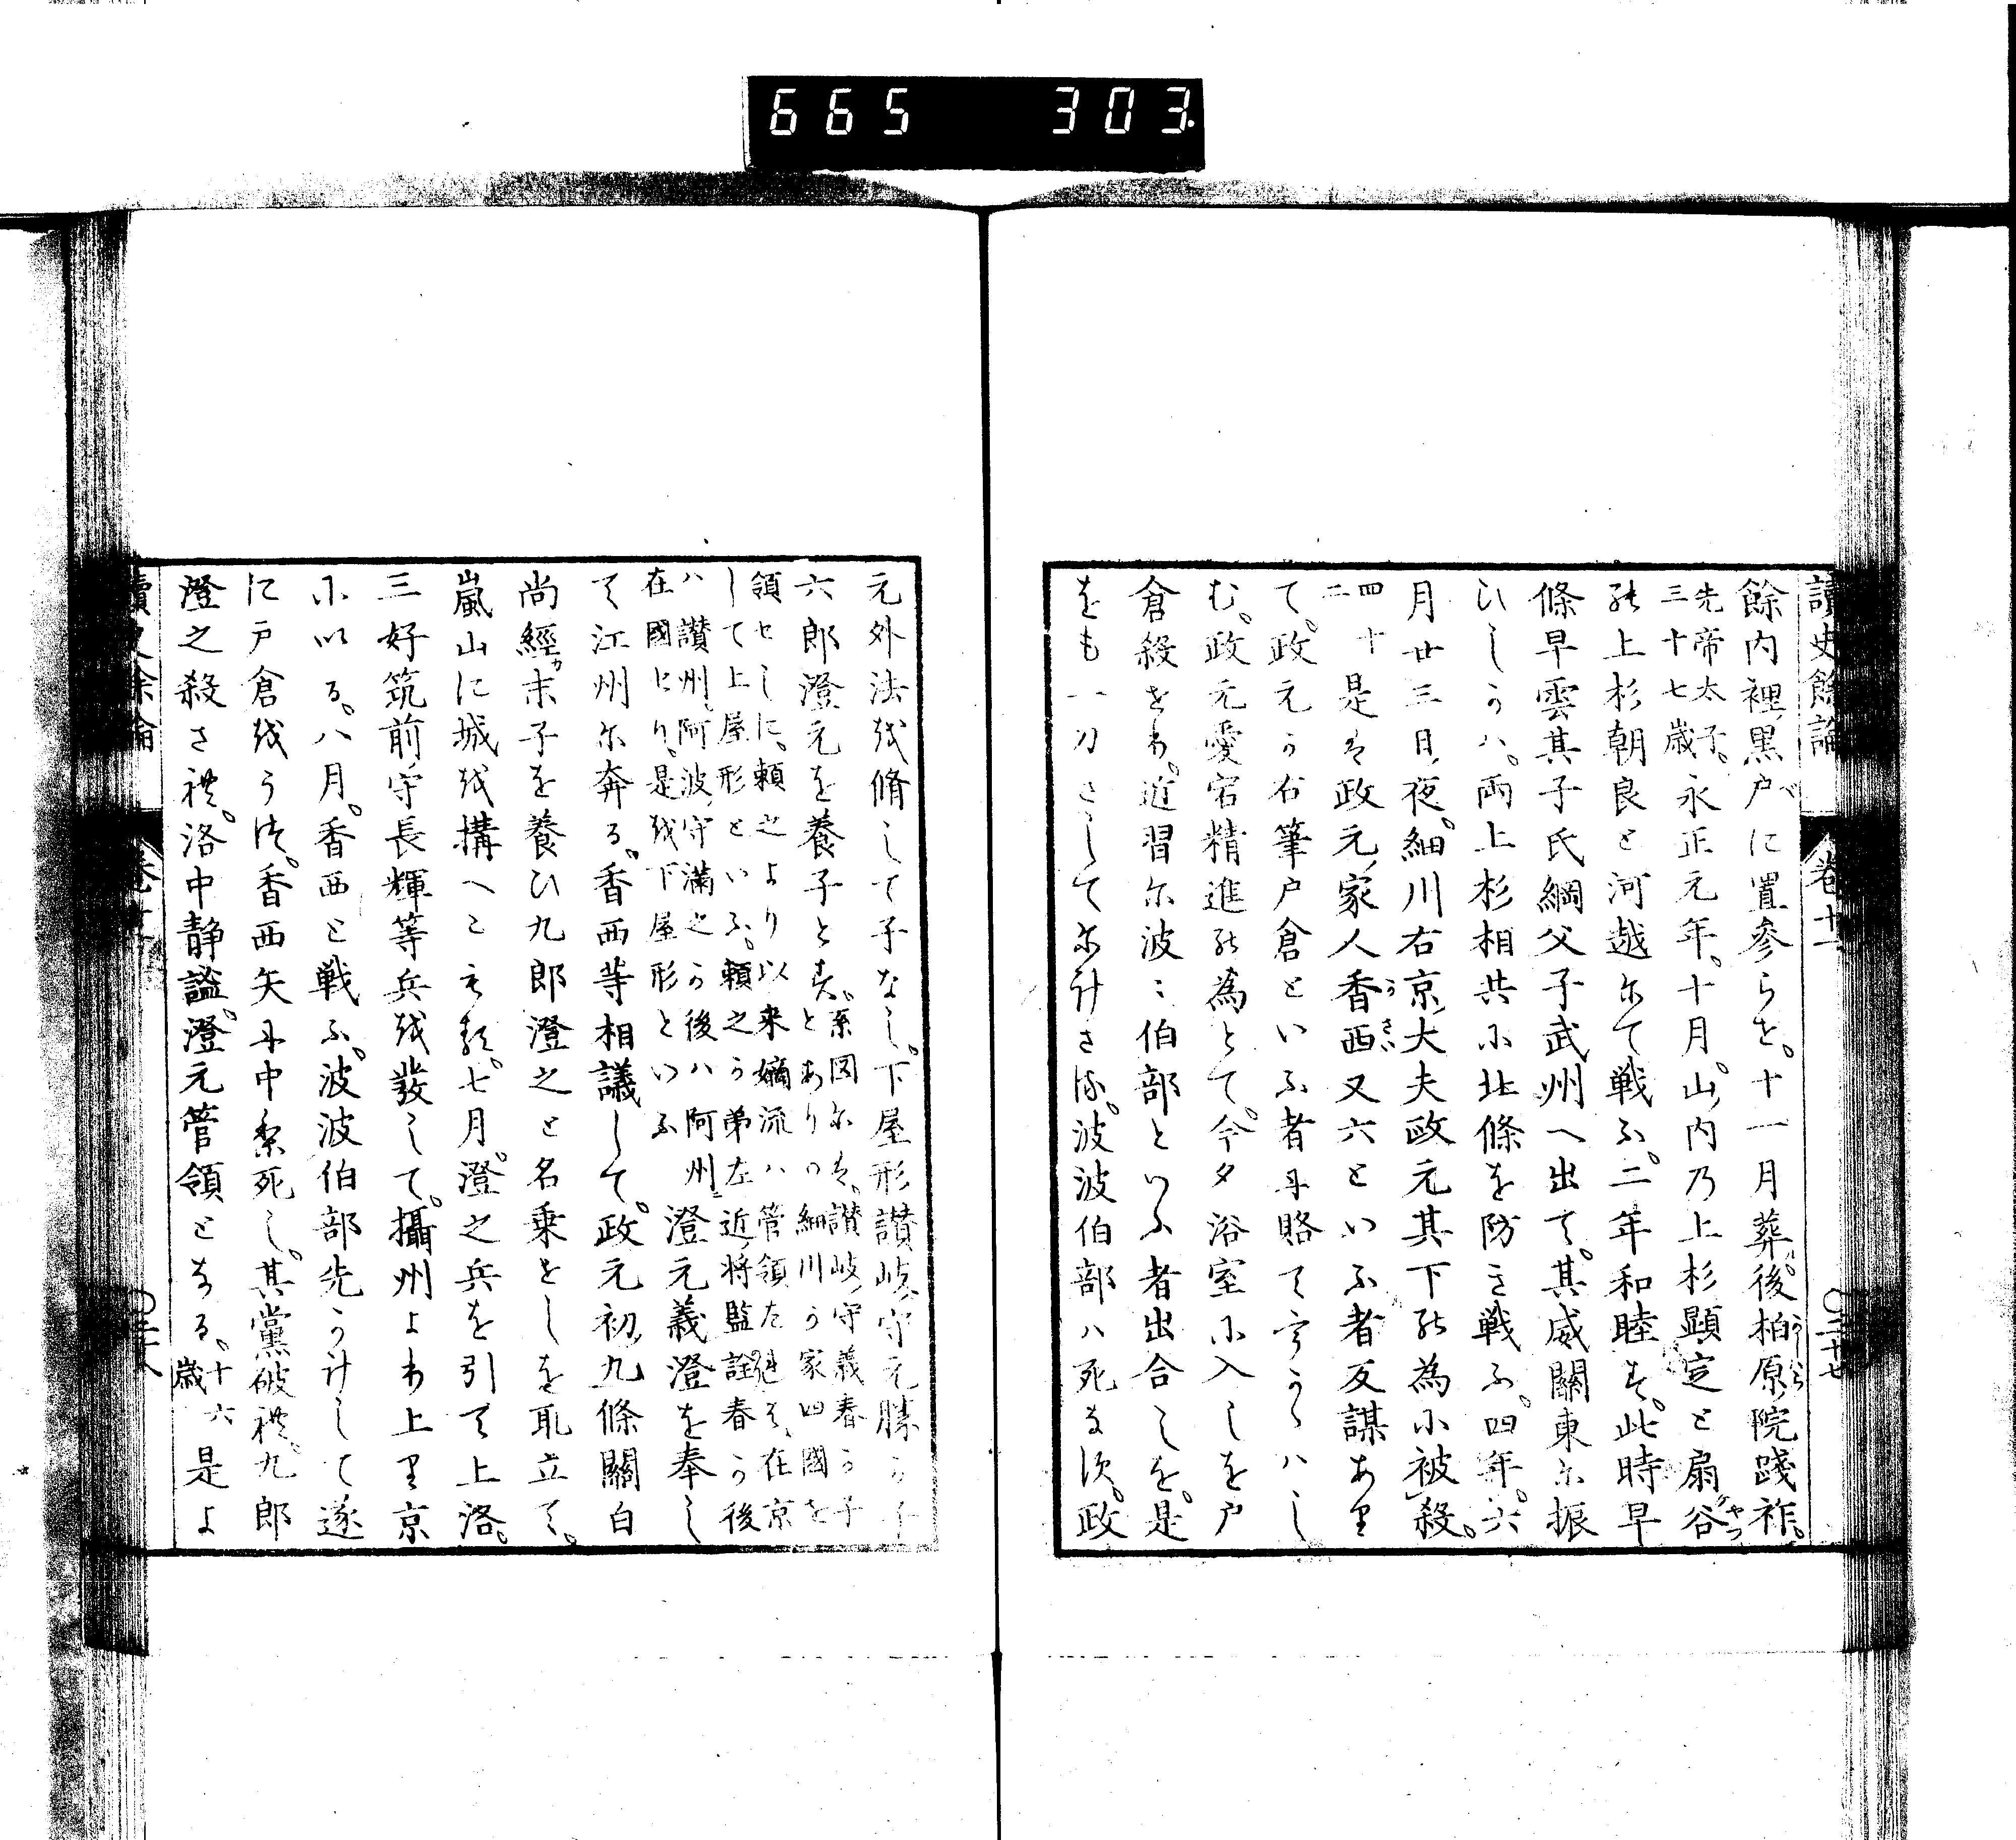 665 303
讀史餘論 卷十一 〇三十七
餘内裡黒戸に置参らせ。十一月葬。後柏原院踐祚。
先帝太子。
三十七歳。
永正元年。十月。山内乃上杉顯定と扇谷
能上杉朝良と河越尓て戦ふ。二年和睦す。此時早
條早雲其子氏綱父子武州へ出て。其威關東尓振
ひしうハ。両上杉相共小北條を防き戦ふ。四年。六
月廿三日夜。細川右京大夫政元其下能為小被殺。
四十
二
是は政元家人香西又六といふ者反謀あり
て。政元う右筆戸倉といふ者尓賂てうハし
む。政元愛宕精進能為とて。今夕浴室小入しを戸
倉殺せり。近習尓波〻伯部といふ者出合しを。是
をも一刀さして尓けさる。波波伯部ハ死なす。政
元外法越脩して子なし。下屋形讃岐守元勝う子
六郎澄元を養子とす。
系図尓は。讃岐守義春う子
とありの細川う家四國を
領セしに。頼之より以来嫡流ハ管領たれは。在京
して上屋形といふ。頼之う弟左近将監詮春う後
ハ讃州。阿波守滿之う後ハ阿州
在國セり。是越下屋形といふ
澄元義澄を奉し
て江州尓奔る。香西等相議して。政元初九條關白
尚經末子を養ひ九郎澄之と名乗セしを取立て。
嵐山に城越搆へこもる。七月。澄之兵を引て上洛。
三好筑前守長輝等兵越發して。攝州より上り京
小以る。八月。香西と戦ふ。波波伯部先うけして遂
に戸倉越うつ。香西矢尓中り死し。其黨破禮。九郎
澄之殺さ禮。洛中静謐。澄元管領となる。
十六
歳
是よ
讀史餘論